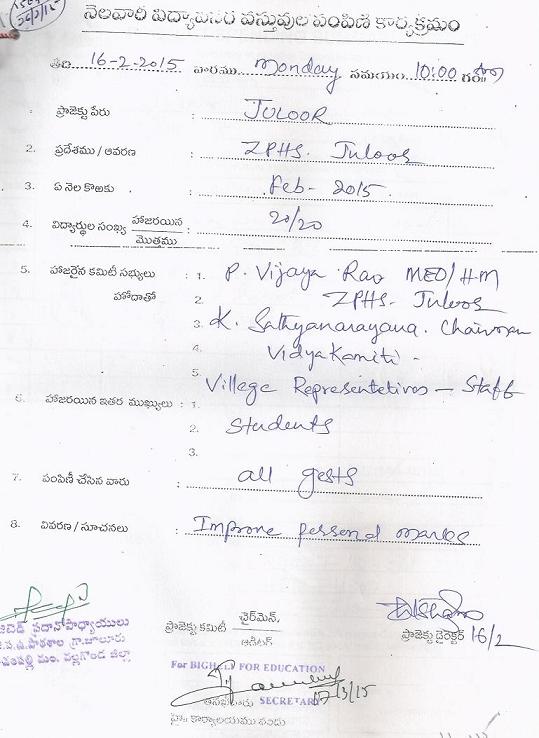 నెలవారీ విద్యావసర వస్తువుల పంపిణి కార్యక్రమం
తేది 16-2-2015 వారము Monday సమయం 10:00 గం॥
ప్రాజెక్టు పేరు : JULOOR
2. ప్రదేశము / ఆవరణ : ZPHS. Juloor
3. ఏ నెల కొఱకు : Feb - 2015.
4. విద్యార్థుల సంఖ్య హాజరయిన / మొత్తము : 20/20
5. హాజరైన కమిటీ సభ్యులు : 1. P. Vijaya Rao MEO/HM
హోదాతో 2. ZPHS. Juloor
3. K. Sathyanarayana. Chairman
4. Vidya Kamiti -
5. Villege Representetives - Staff
6. హాజరయిన ఇతర ముఖ్యులు : 1.
2. Students
3.
7. పంపిణీ చేసిన వారు : all gests
8. వివరణ / సూచనలు : Improve personal marks
ప్రధానోపాధ్యాయులు
ప్రాజెక్టు కమిటీ ఛైర్మెన్, / ఆడిటర్
ప్రాజెక్టు డైరెక్టర్ 16/2
For BIGHELP FOR EDUCATION
17/3/15
SECRETARY